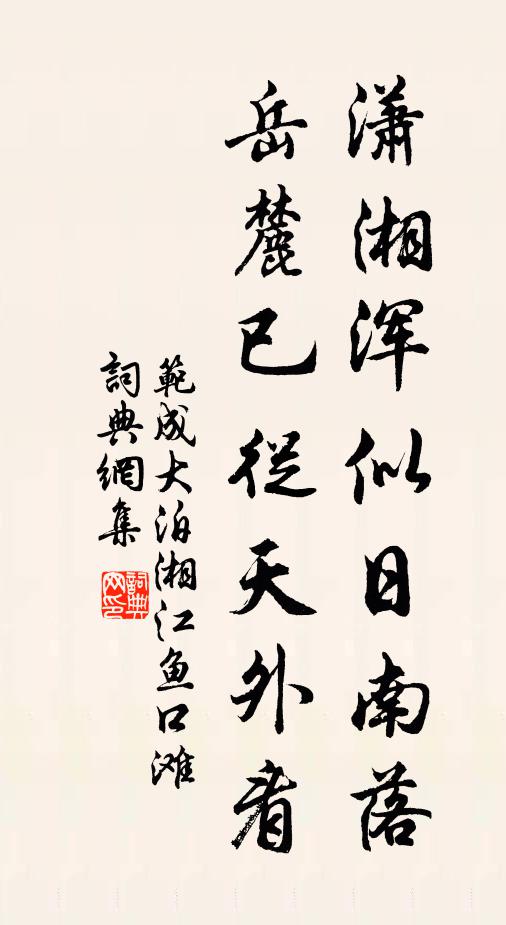 潇湘浑似日南落
岳麓已從天外看
範成大泊湘江鱼口滩
詞典網集
詞典网印